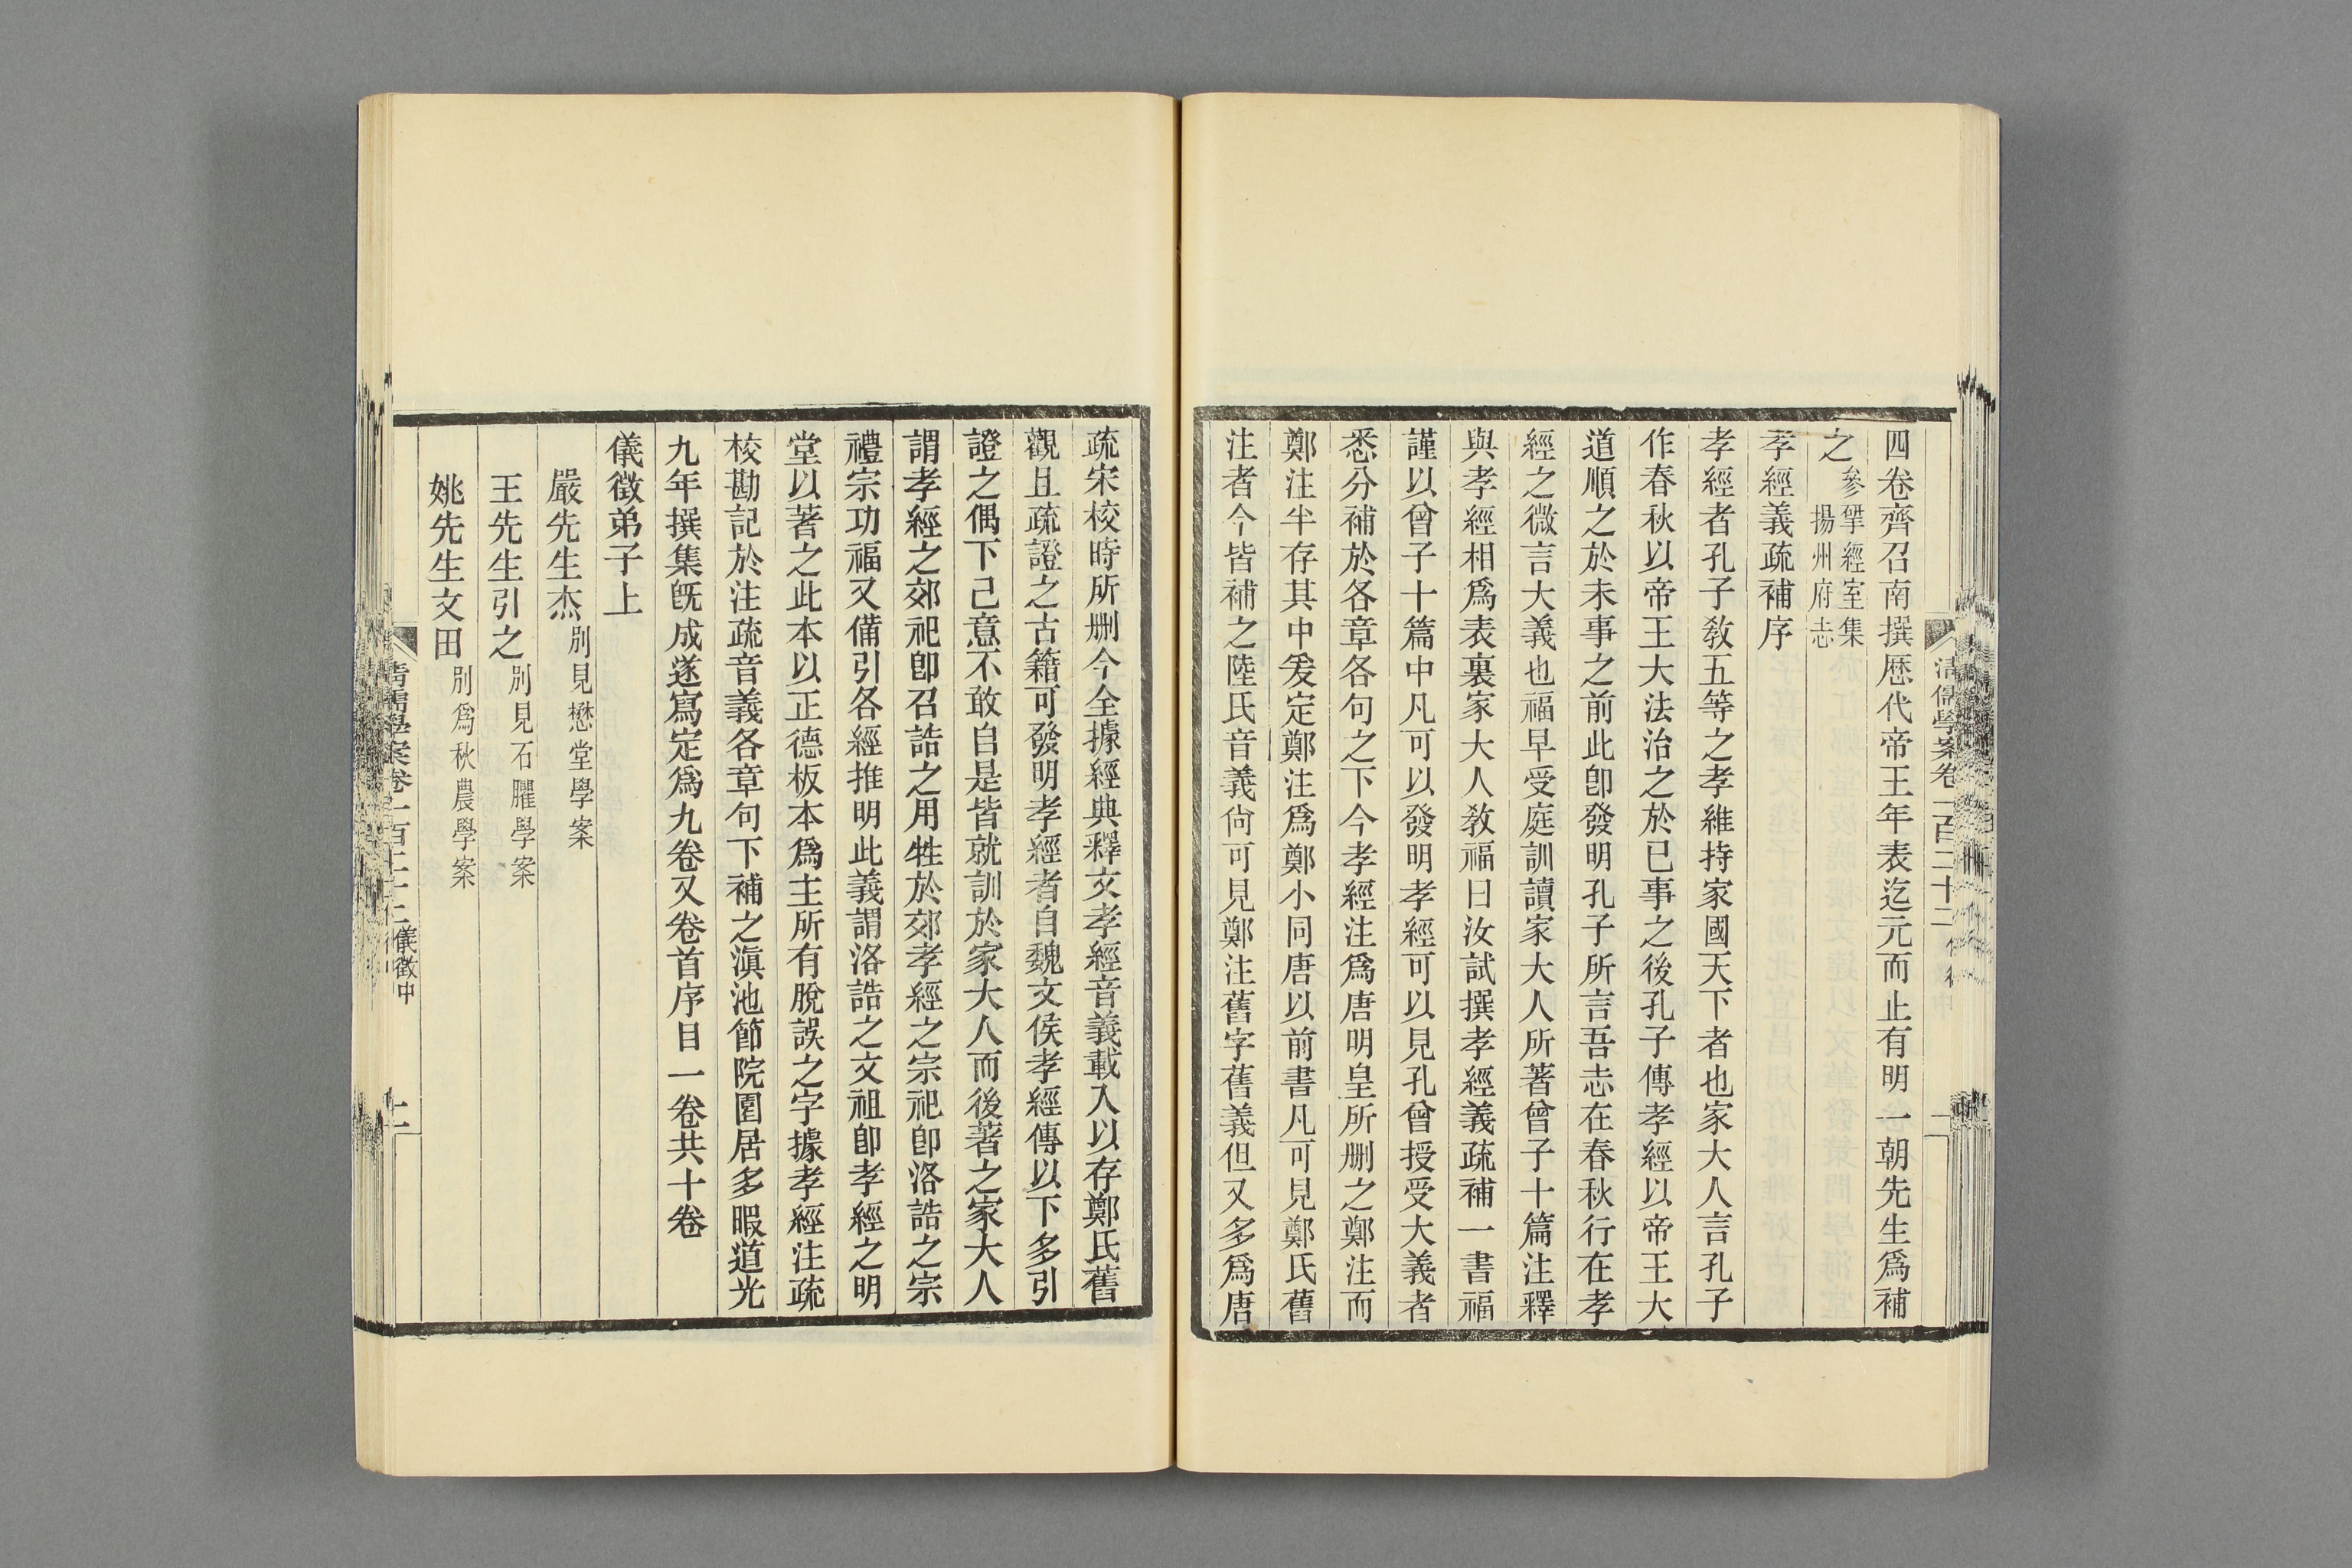 四卷齊召南撰歷代帝王年表迄元而止有明一朝先生爲補
之參揅經室集揚州府志
孝經義疏補序
孝經者孔子敎五等之孝維持家國天下者也家大人言孔子
作春秋以帝王大法治之於已事之後孔子傳孝經以帝王大
道順之於未事之前此卽發明孔子所言吾志在春秋行在孝
經之微言大義也福早受庭訓讀家大人所著曾子十篇注釋
與孝經相爲表裏家大人敎福曰汝試撰孝經義疏補一書福
謹以曾子十篇中凡可以發明孝經可以見孔曾授受大義者
悉分補於各章各句之下今孝經注爲唐明皇所删之鄭注而
鄭注半存其中爰定鄭注爲鄭小同唐以前書凡可見鄭氏舊
注者今皆補之陸氏音義尙可見鄭注舊字舊義但又多爲唐
疏宋校時所删今全據經典釋文孝經音義載入以存鄭氏舊
觀且疏證之古籍可發明孝經者自魏文侯孝經傳以下多引
證之偶下己意不敢自是皆就訓於家大人而後著之家大人
謂孝經之郊祀卽召誥之用牲於郊孝經之宗祀卽洛誥之宗
禮宗功福又備引各經推明此義謂洛誥之文祖卽孝經之明
堂以著之此本以正德板本爲主所有脫誤之字據孝經注疏
校勘記於注疏音義各章句下補之滇池節院圍居多暇道光
九年撰集旣成遂寫定爲九卷又卷首序目一卷共十卷
儀徵弟子上
嚴先生杰別見懋堂學案
王先生引之別見石臞學案
姚先生文田別爲秋農學案
清儒學案卷一百二十二儀徵中